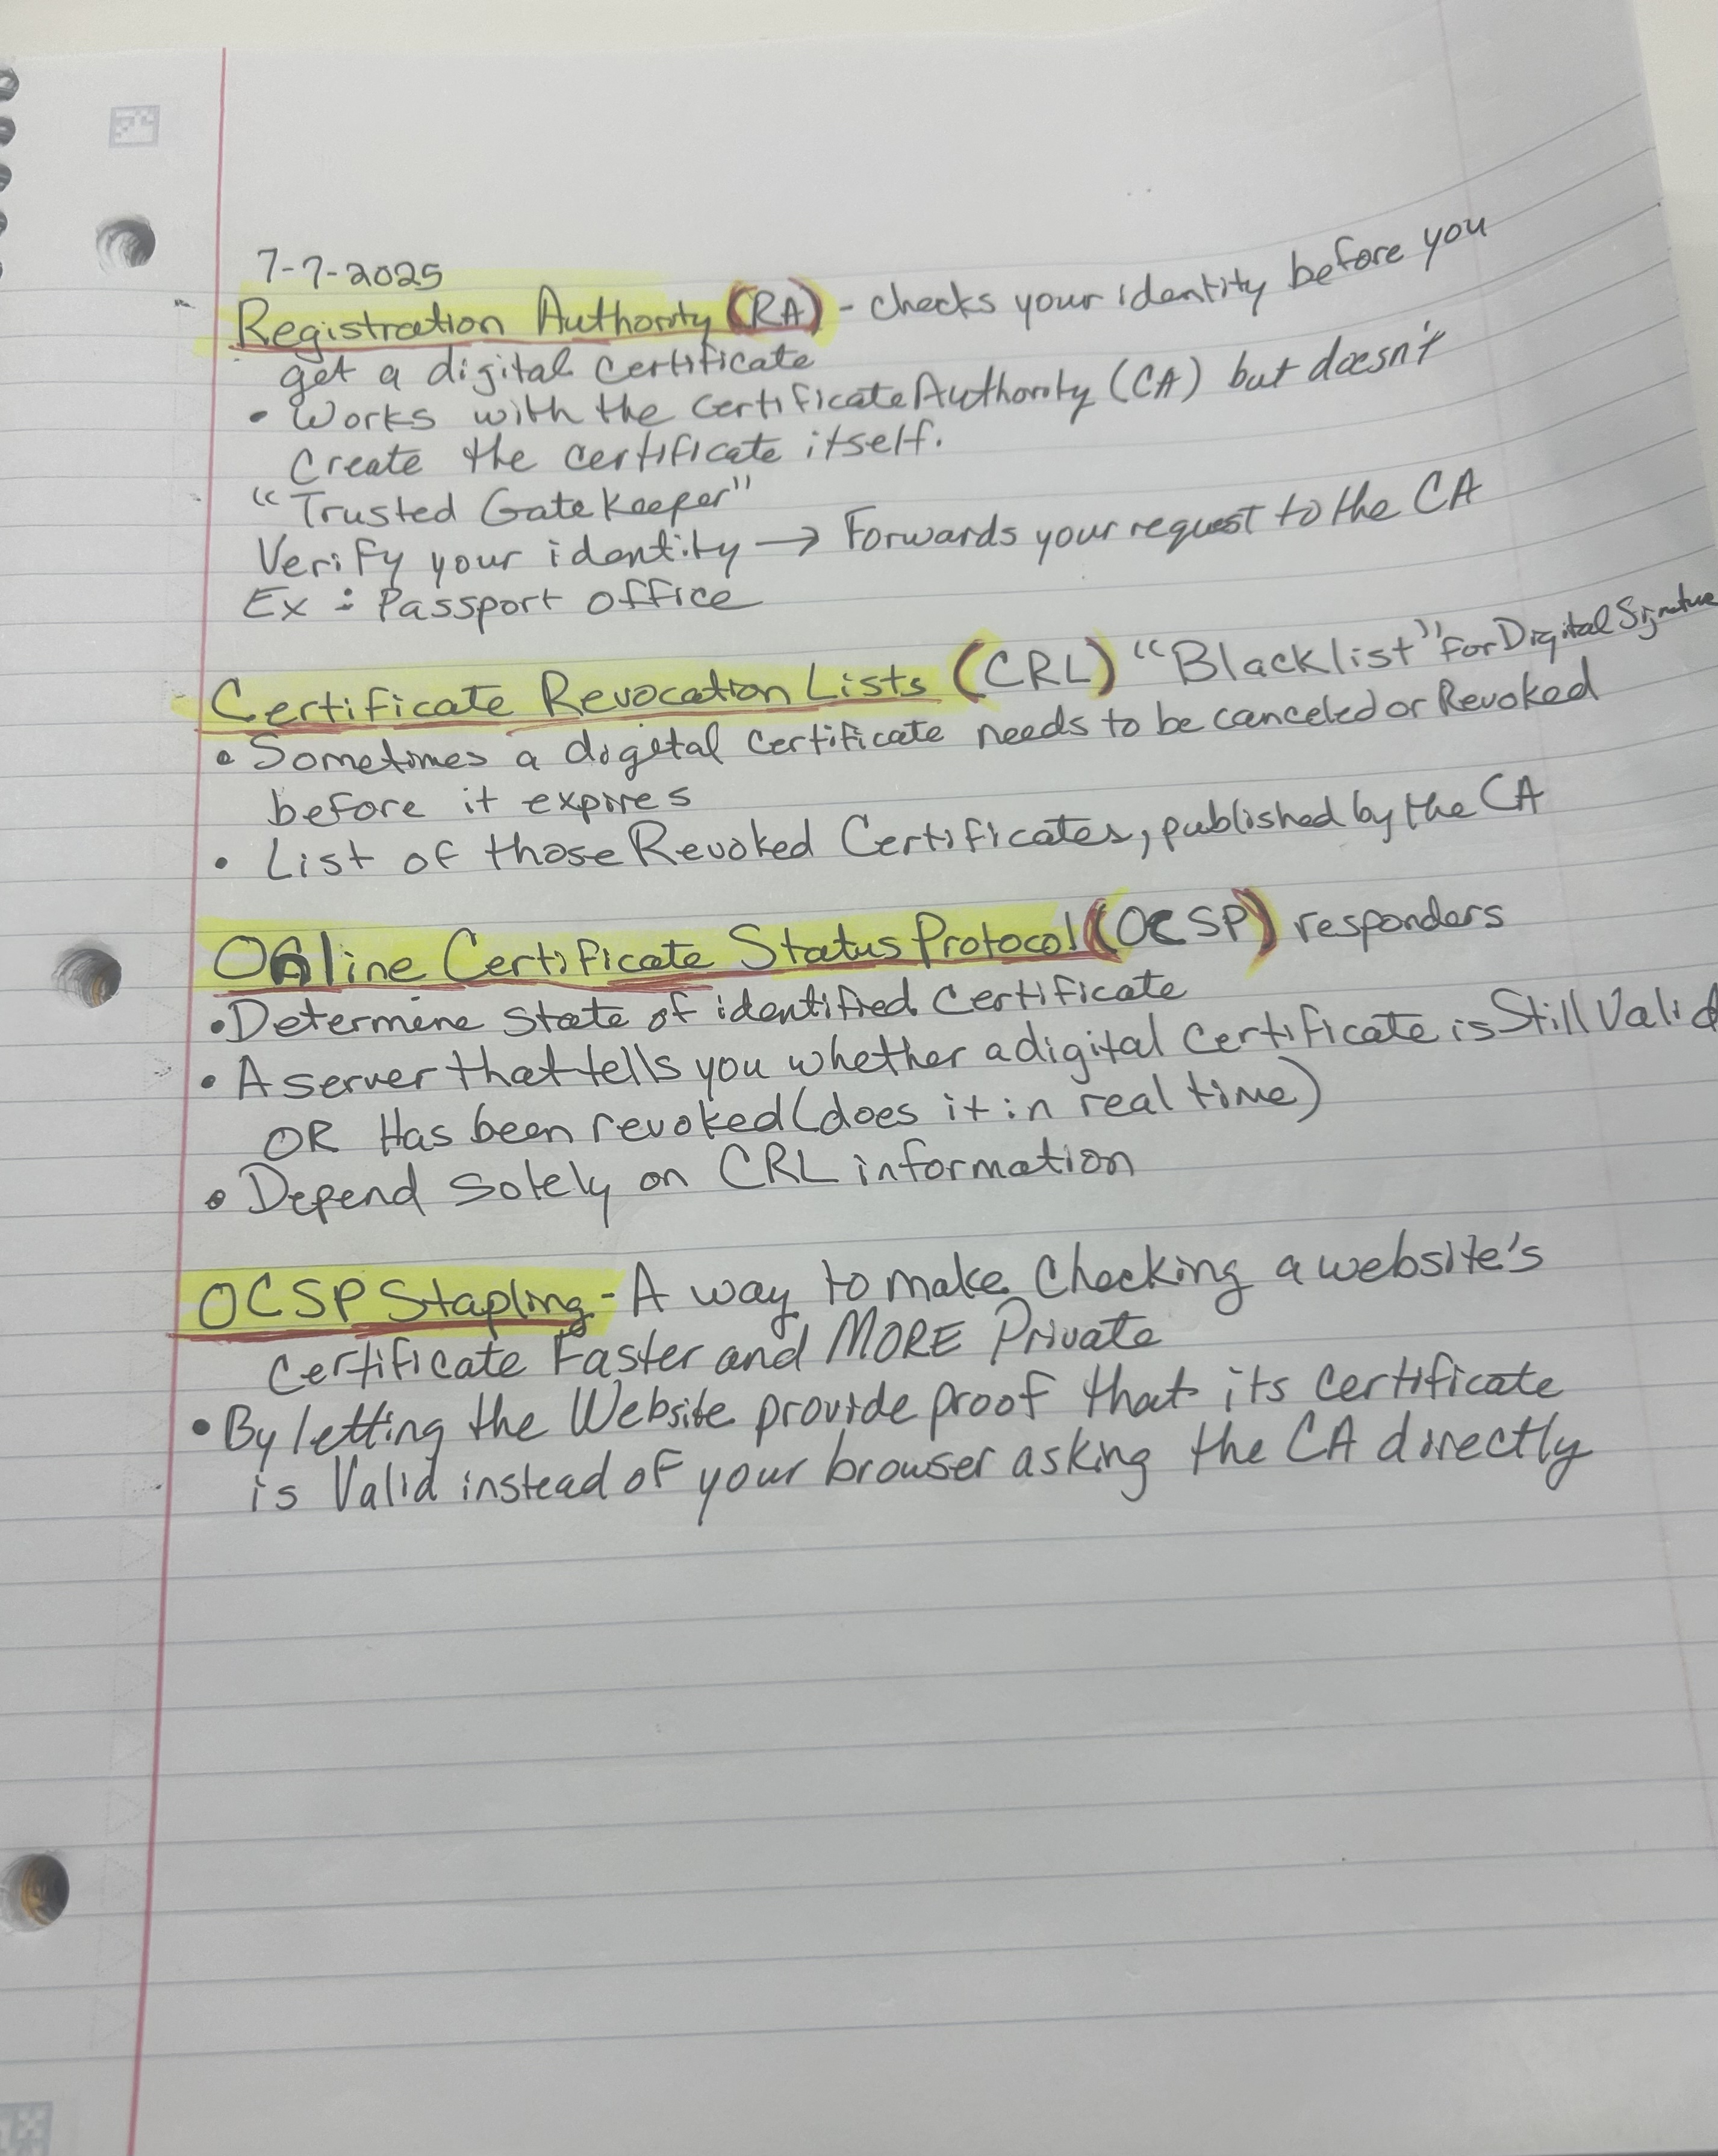 7-7-2025
Registration Authority (RA) - checks your identity before you
get a digital certificate
• Works with the certificate Authority (CA) but doesn't
Create the certificate itself.
"Trusted Gate Keeper"
Verify your identity → Forwards your request to the CA
Ex : Passport office
Certificate Revocation Lists (CRL) "Blacklist" for Digital Signature
• Sometimes a digital certificate needs to be canceled or Revoked
before it expires
• List of those Revoked Certificates, published by the CA
Online Certificate Status Protocol (OCSP) responders
• Determine state of identified certificate
• A server that tells you whether a digital certificate is Still Valid
OR Has been revoked (does it in real time)
• Depend solely on CRL information
OCSP Stapling - A way to make Checking a website's
certificate Faster and MORE Private
• By letting the Website provide proof that its certificate
is Valid instead of your browser asking the CA directly